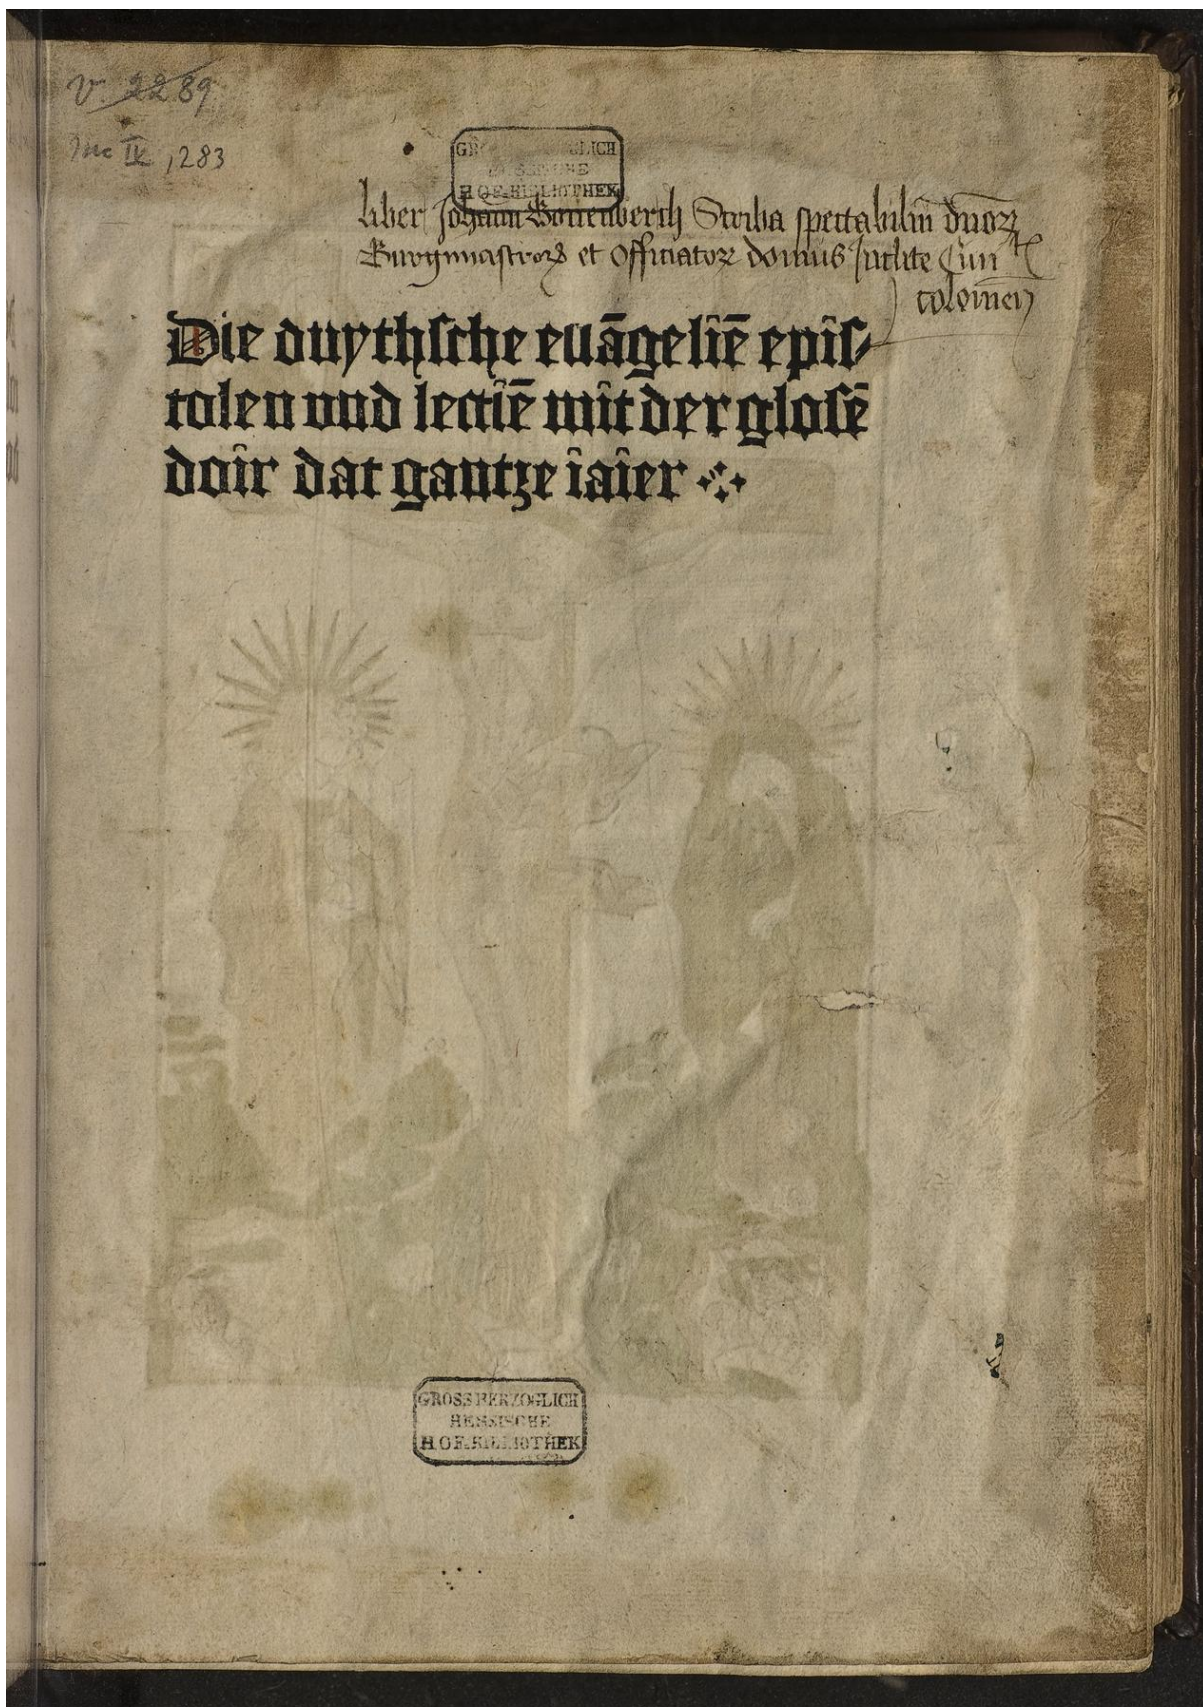 V. 2289
Inc IV, 283
GROSSHERZOGLICH
HESSISCHE
HOF-BIBLIOTHEK
liber Johann Scriba spectabiliū dn̄oꝝ
et officiatoꝝ domus Inclite
Die duythsche euāgeliē epis-
tolen vnd lectiē mit der glosē
doir dat gantze iaier
GROSSHERZOGLICH
HESSISCHE
HOF-BIBLIOTHEK